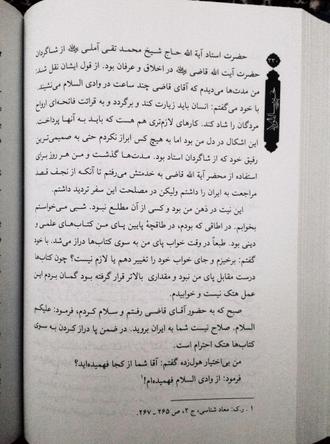 ۲۳۰
حضرت استاد آیة الله حاج شیخ محمد تقی آملی از شاگردان
حضرت آیت الله قاضی در اخلاق و عرفان بود. از قول ایشان نقل شد:
من مدت‌ها می‌دیدم که آقای قاضی چند ساعت در وادی السلام می‌نشیند.
با خود می‌گفتم: انسان باید زیارت کند و برگردد و به قرائت فاتحه‌ای ارواح
مردگان را شاد کند. کارهای لازم‌تری هم هست که باید به آنها پرداخت.
این اشکال در دل من بود اما به هیچ کس ابراز نکردم حتی به صمیمی‌ترین
رفیق خود که از شاگردان استاد بود. مدت‌ها گذشت و من هر روز برای
استفاده از محضر آیة الله قاضی به خدمتش می‌رفتم تا آنکه از نجف قصد
مراجعت به ایران را داشتم ولیکن در مصلحت این سفر تردید داشتم.
این نیت در ذهن من بود و کسی از آن مطلع نبود. شبی می‌خواستم
بخوابم. در اطاقی که بودم، در طاقچهٔ پایین پای من کتاب‌های علمی و
دینی بود. طبعاً در وقت خواب پای من به سوی کتاب‌ها دراز می‌شد. با خود
گفتم: برخیزم و جای خواب خود را تغییر دهم یا لازم نیست؟ چون کتاب‌ها
درست مقابل پای من نبود و مقداری بالاتر قرار گرفته بود گمان بردم این
عمل هتک نیست و خوابیدم.
صبح که به حضور آقای قاضی رفتم و سلام کردم، فرمود: علیکم
السلام. صلاح نیست شما به ایران بروید. در ضمن پا دراز کردن به سوی
کتاب‌ها هتک احترام است.
من بی‌اختیار هول‌زده گفتم: آقا شما از کجا فهمیده‌اید؟
فرمود: از وادی السلام فهمیده‌ام!¹
۱ . ر.ک: معاد شناسی، ج ۲، ص ۲۶۵ - ۲۶۷.